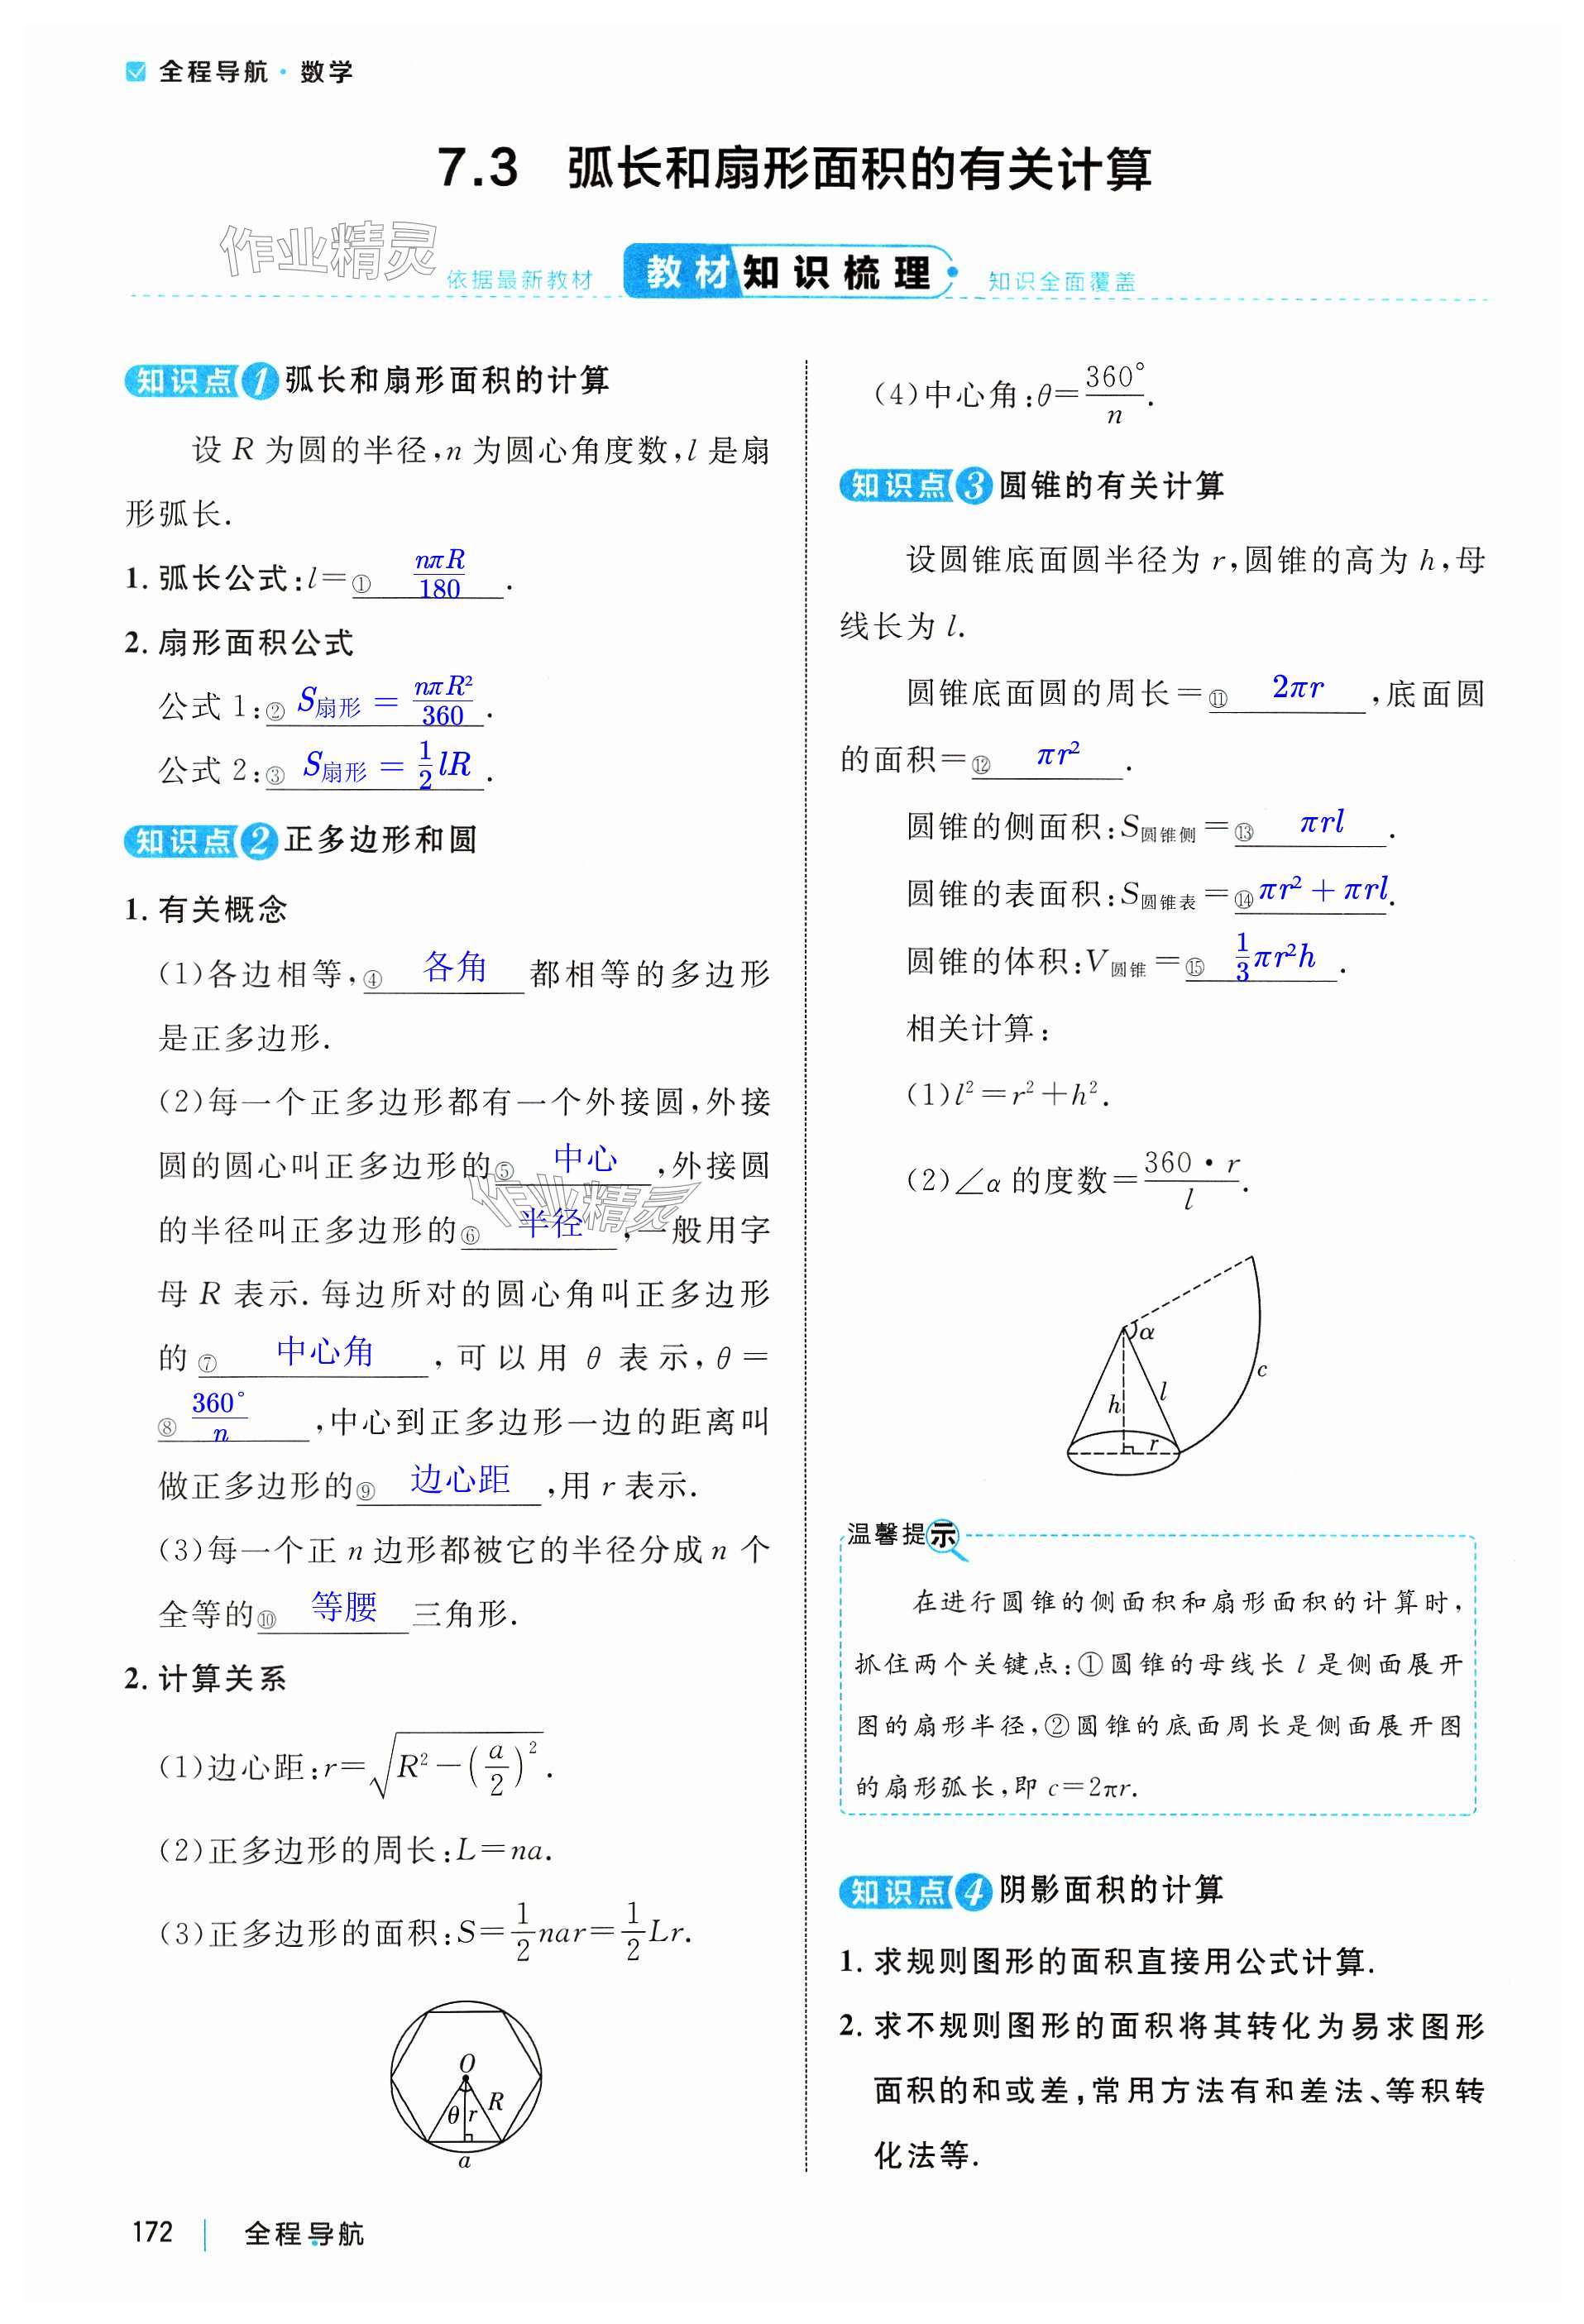 全程导航·数学
7.3 弧长和扇形面积的有关计算
作业精灵
依据最新教材 教材知识梳理 知识全面覆盖
知识点1 弧长和扇形面积的计算
设 R 为圆的半径,n 为圆心角度数,l 是扇
形弧长.
1. 弧长公式:l=① nπR/180 .
2. 扇形面积公式
公式 1:② S扇形 = nπR²/360 .
公式 2:③ S扇形 = 1/2 lR .
知识点2 正多边形和圆
1. 有关概念
(1)各边相等,④ 各角 都相等的多边形
是正多边形.
(2)每一个正多边形都有一个外接圆,外接
圆的圆心叫正多边形的⑤ 中心 ,外接圆
作业精灵
的半径叫正多边形的⑥ 半径 ,一般用字
母 R 表示. 每边所对的圆心角叫正多边形
的⑦ 中心角 ,可以用 θ 表示,θ=
⑧ 360°/n ,中心到正多边形一边的距离叫
做正多边形的⑨ 边心距 ,用 r 表示.
(3)每一个正 n 边形都被它的半径分成 n 个
全等的⑩ 等腰 三角形.
2. 计算关系
(1)边心距:r=√(R²-(a/2)²).
(2)正多边形的周长:L=na.
(3)正多边形的面积:S=1/2 nar=1/2 Lr.
O
θ r R
a
(4)中心角:θ=360°/n.
知识点3 圆锥的有关计算
设圆锥底面圆半径为 r,圆锥的高为 h,母
线长为 l.
圆锥底面圆的周长=⑪ 2πr ,底面圆
的面积=⑫ πr² .
圆锥的侧面积:S圆锥侧=⑬ πrl .
圆锥的表面积:S圆锥表=⑭ πr² + πrl.
圆锥的体积:V圆锥=⑮ 1/3 πr²h .
相关计算:
(1)l²=r²+h².
(2)∠α 的度数=360·r/l.
α
c
h l
r
温馨提示
在进行圆锥的侧面积和扇形面积的计算时,
抓住两个关键点:①圆锥的母线长 l 是侧面展开
图的扇形半径,②圆锥的底面周长是侧面展开图
的扇形弧长,即 c=2πr.
知识点4 阴影面积的计算
1. 求规则图形的面积直接用公式计算.
2. 求不规则图形的面积将其转化为易求图形
面积的和或差,常用方法有和差法、等积转
化法等.
172 全程导航